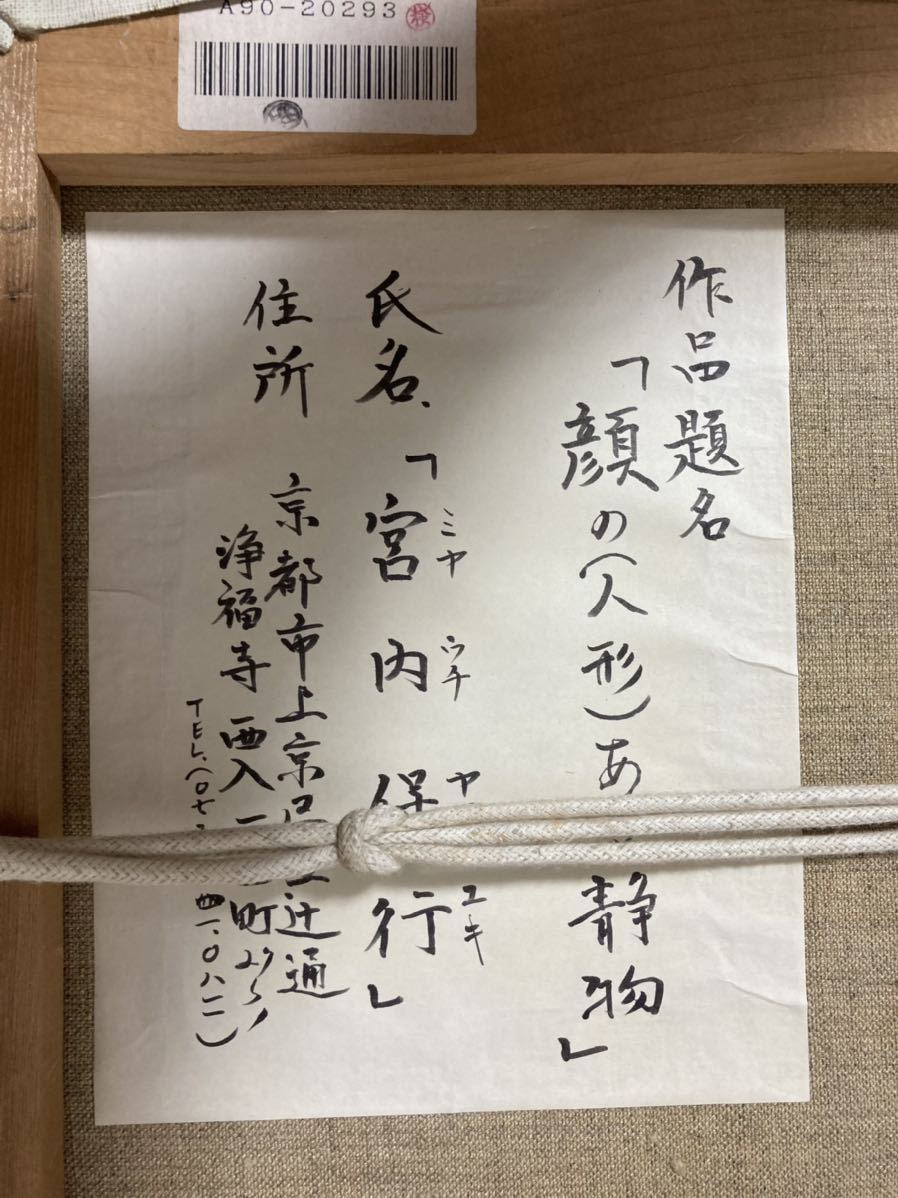 A90-20293
作品題名
「顔の(人形)あ 静物」
氏名、「宮内保行」
ミヤ ウチ ヤ ユキ
住所 京都市上京区 辻通
浄福寺西入 町
TEL.(〇七 四一、〇八一一)